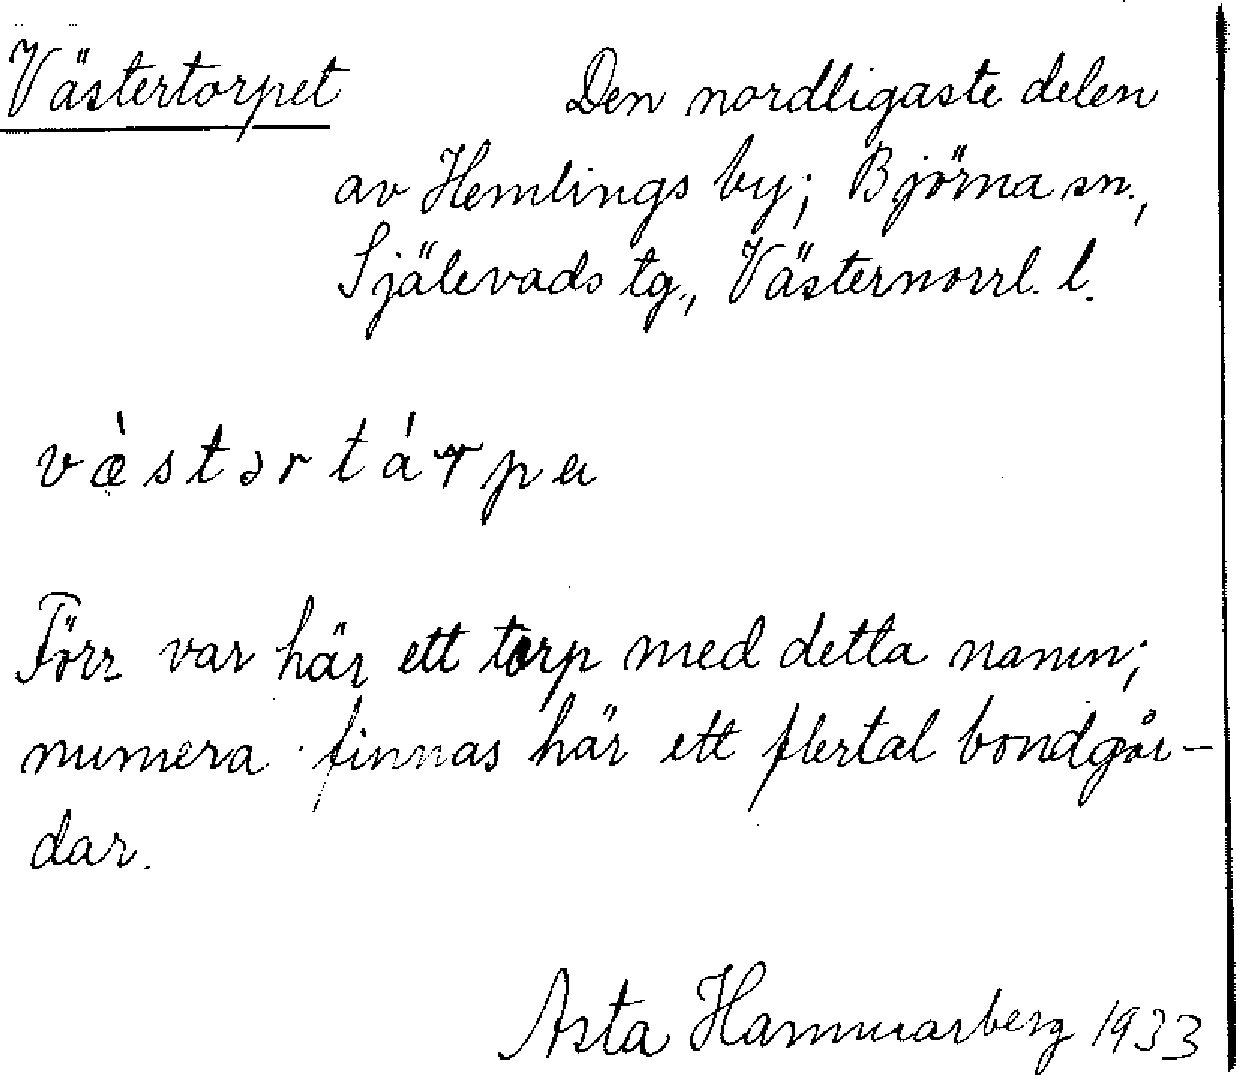 Västertorpet Den nordligaste delen
av Hemlings by; Björna sn.,
Själevads tg., Västernorrl. l.
Förr var här ett torp med detta namn;
numera finnas här ett flertal bondgår-
dar.
Asta Hammarberg 1933